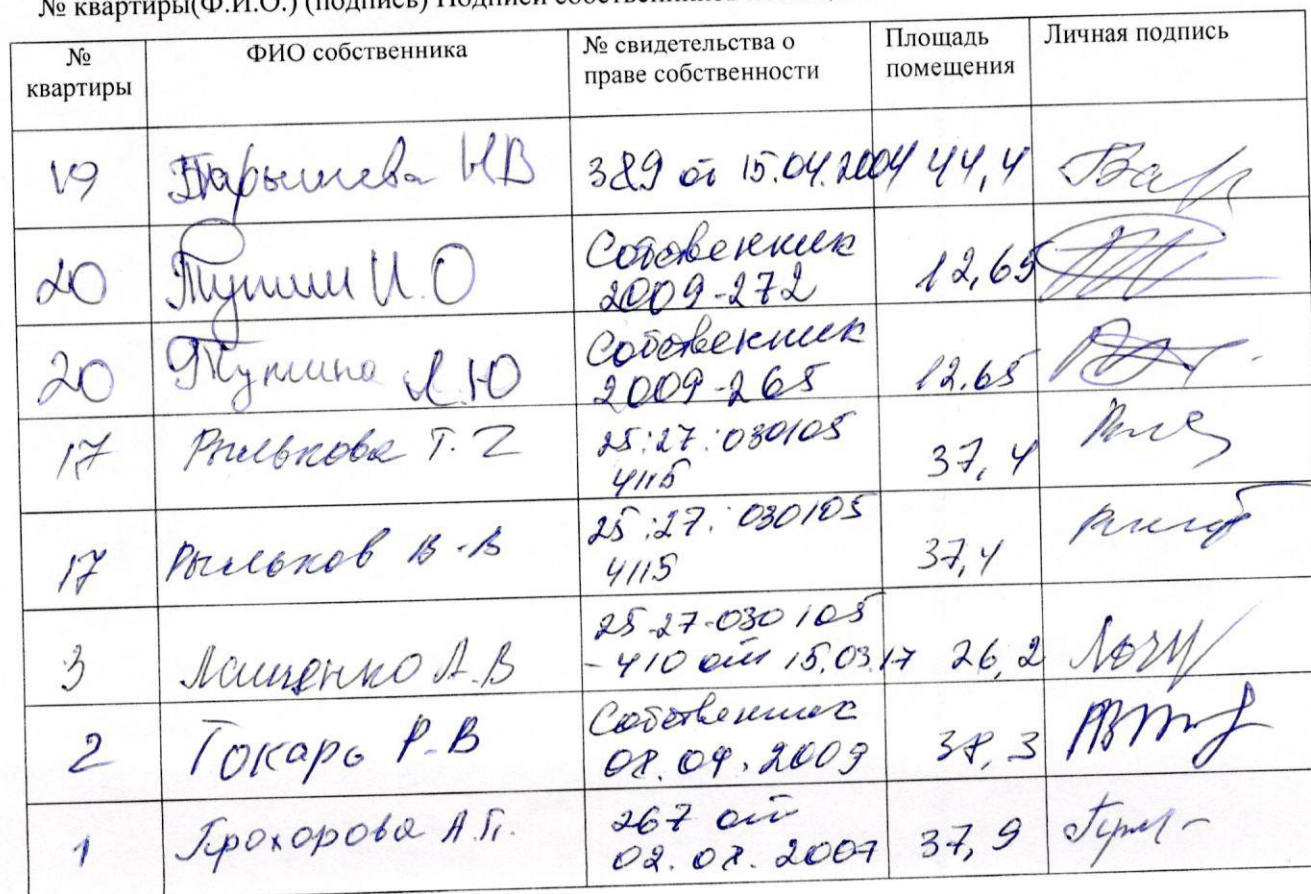 № квартиры(Ф.И.О.) (подпись) Подписи собственников
№ квартиры
ФИО собственника
№ свидетельства о праве собственности
Площадь помещения
Личная подпись
19 Барышева НВ 389 от 15.04.2004 44,4
20 Тупиш И.О Собственник 2009-272 12,65
20 Л.Ю Собственник 2009-265 12.65
17 Рылькова Т. 25:27:030105 4115 37,4
17 Рыльков В-В 25:27:030105 4115 37,4
3 Лащенко А.В 25-27-030105 -410 от 15.03.17 26,2
2 Токарь Р-В Собственник 2009 38,3
1 Прохорова А.П. 267 от 37,9